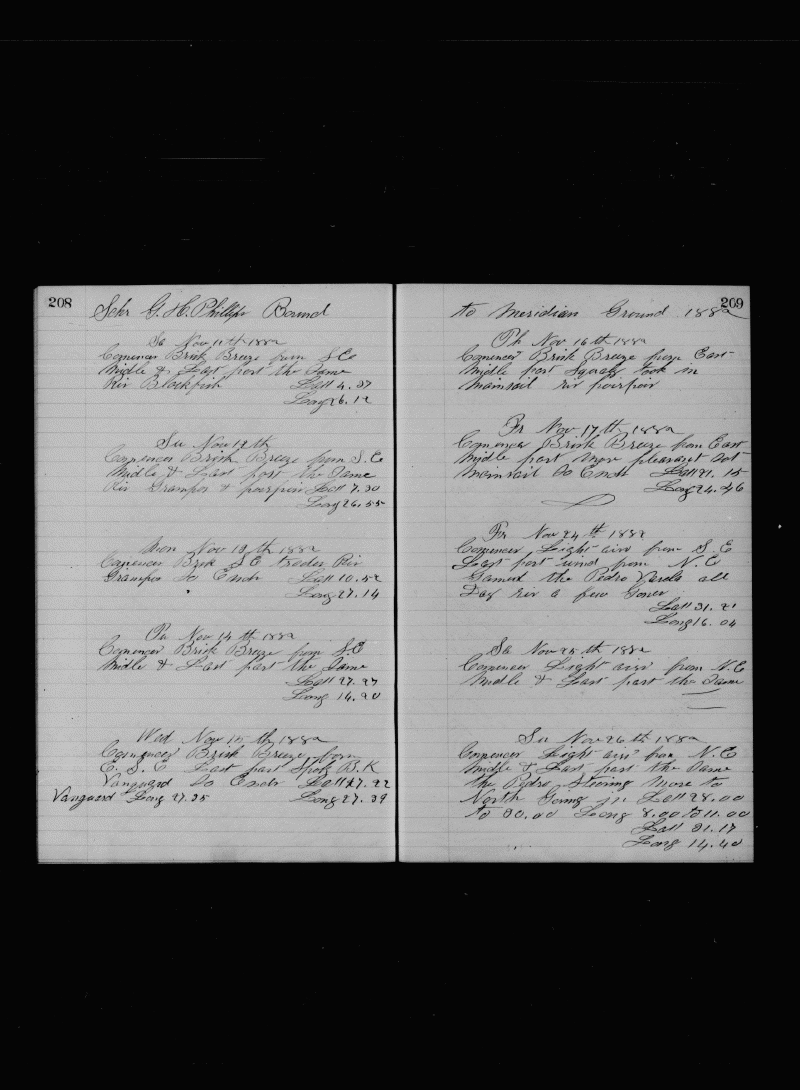 208
Schr G. H. Phillips Bound
Sa Nov 11th 1882
Comences Brisk Breeze from S E
Midle & Last part the Same
Riz Blackfish Latt 4.37
Long 26.12
Su Nov 12th
Comences Brisk Breeze from S.E
Midle & Last part the Same
Riz Grampos & porpoir Latt 7.30
Long 26.55
Mon Nov 13th 1882
Comences Brisk S E Trades Riz
Grampos So Ends Latt 10.52
Long 27.14
Tu Nov 14th 1882
Comences Brisk Breeze from S.E
Midle & Last part the Same
Latt 27.27
Long 14.20
Wed Nov 15th 1882
Comences Brisk Breeze from
E. S. E Last part Spok B.K
Vanguard So Ends Latt 17.22
Vanguard Long 27.35 Long 27.39
209
to Meridian Ground 1882
Th Nov 16th 1882
Comences Brisk Breeze from East
Midle part Squaly took in
Mainsail riz porpoir
Fr Nov 17th 1882
Comences Brisk Breeze from East
Midle part more pleasant Sot
Mainsail So Ends Latt 21.15
Long 24.46
Fr Nov 24th 1882
Comences Light airs from S E
Last part wind from N. E
Gamed the Pedro Varela all
Day riz a few
Latt 31.21
Long 16.04
Sa Nov 25th 1882
Comences Light airs from N.E
Midle & Last part the Same
Su Nov 26th 1882
Comences Light airs from N. E
Midle & Last part the Same
the Pedro Stering more to
North Latt 28.00
to 30.00 Long 8.00 to 11.00
Latt 31.17
Long 14.40